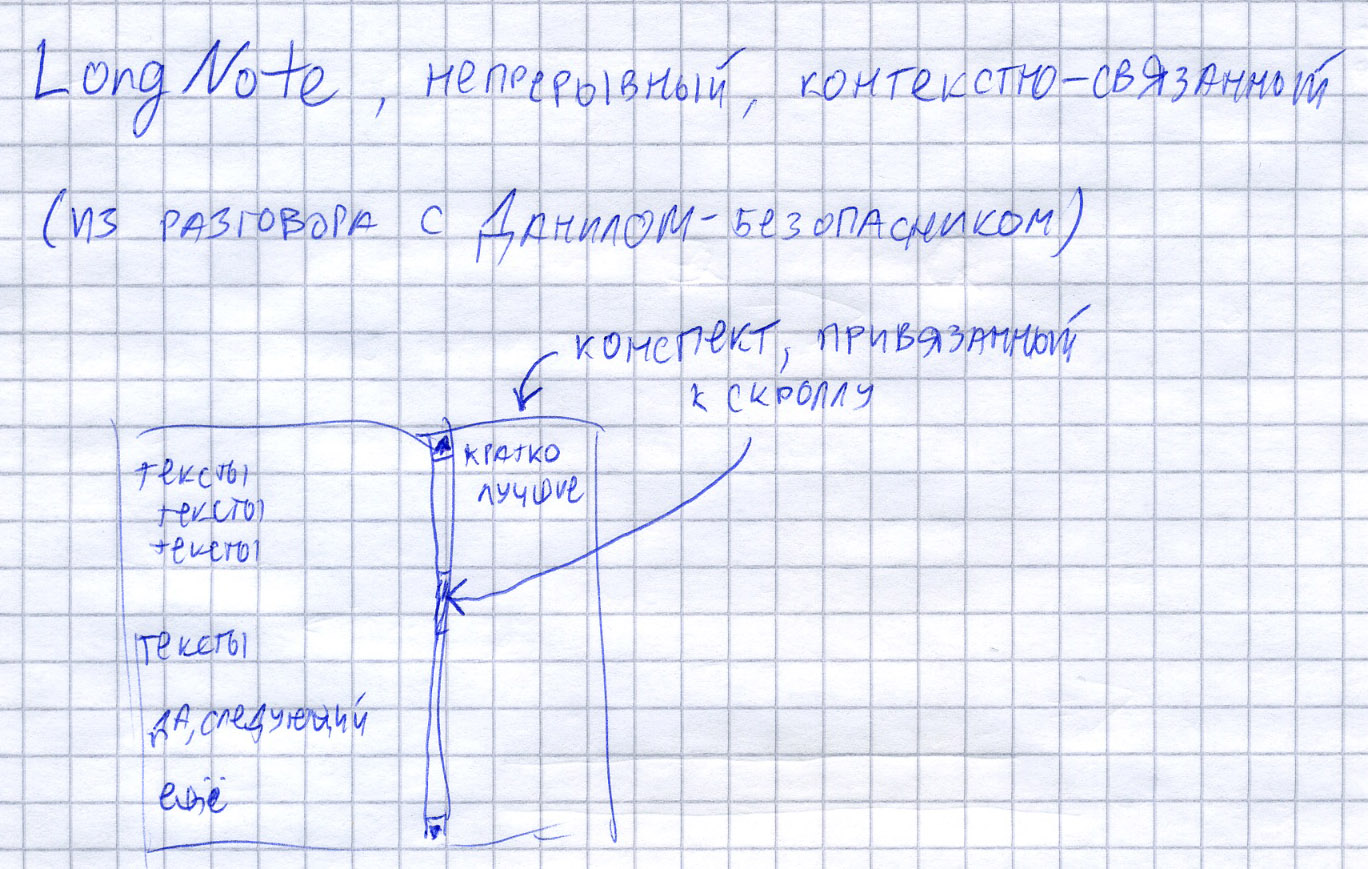 Long Note, непрерывный, контекстно-связанный
(из разговора с Данилом-безопасником)
конспект, привязанный
к скроллу
кратко
лучше
тексты
тексты
тексты
тексты
да, следующий
ещё